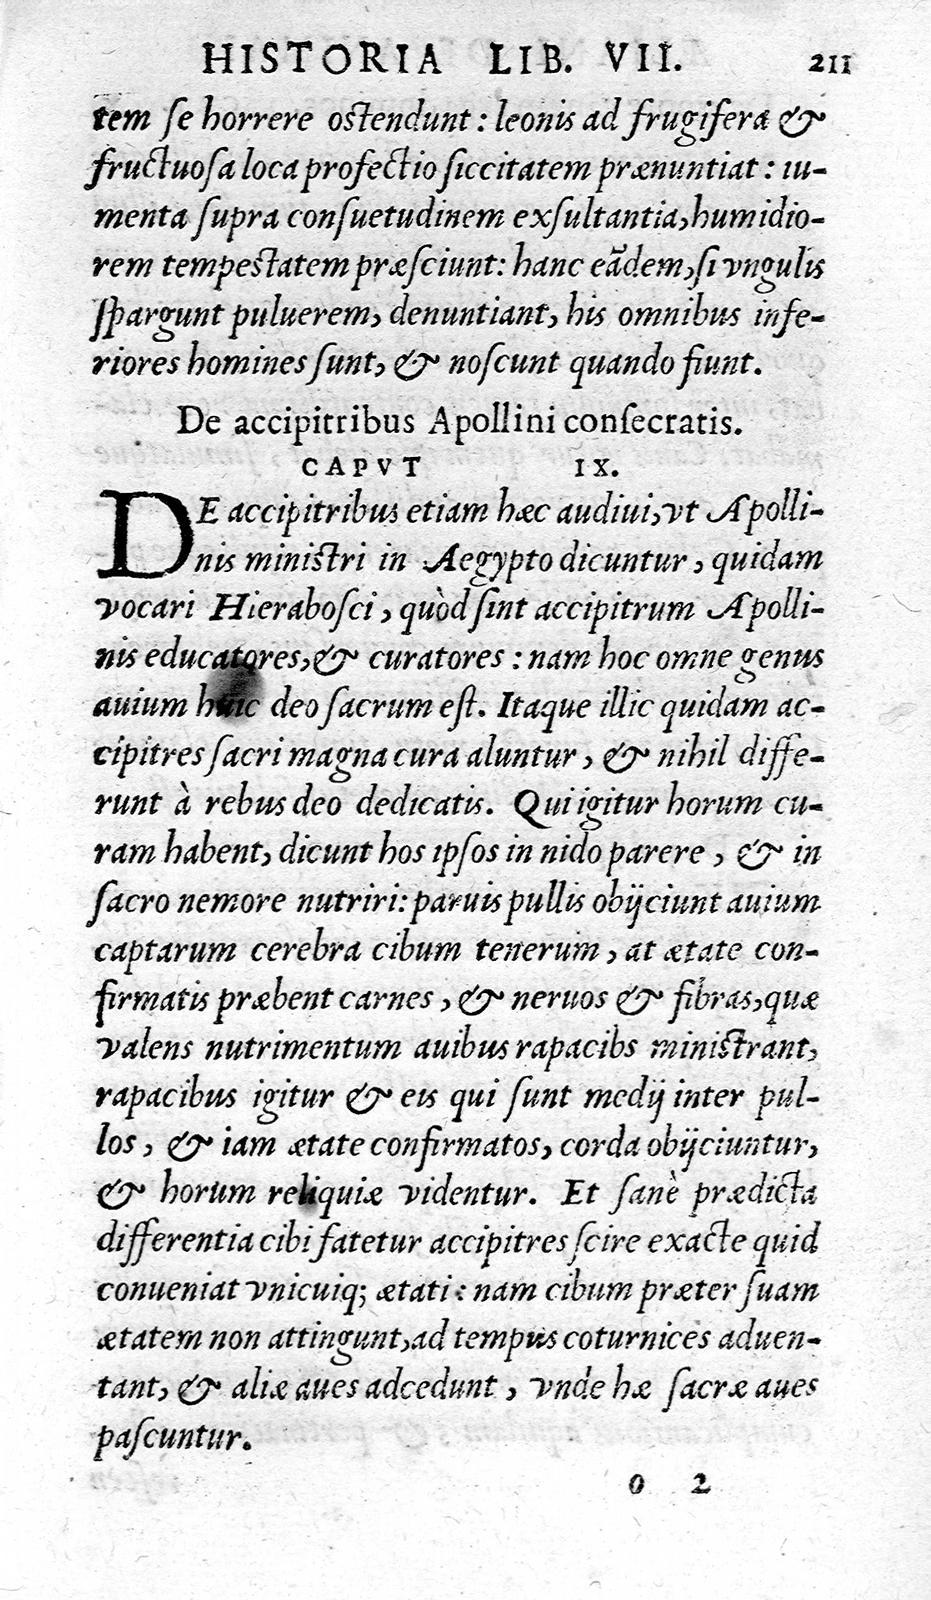 HISTORIA LIB. VII. 211
tem ſe horrere oſtendunt: leonis ad frugifera &
fructuoſa loca profectio ſiccitatem prænuntiat: iu-
menta ſupra conſuetudinem exſultantia, humidio-
rem tempeſtatem præſciunt: hanc eãdem, ſi vngulis
ſpargunt puluerem, denuntiant, his omnibus infe-
riores homines ſunt, & noſcunt quando fiunt.
De accipitribus Apollini conſecratis.
CAPVT IX.
DE accipitribus etiam hæc audiui, vt Apolli-
nis miniſtri in Aegypto dicuntur, quidam
vocari Hieraboſci, quòd ſint accipitrum Apolli-
nis educatores, & curatores: nam hoc omne genus
auium huic deo ſacrum eſt. Itaque illic quidam ac-
cipitres ſacri magna cura aluntur, & nihil diffe-
runt à rebus deo dedicatis. Qui igitur horum cu-
ram habent, dicunt hos ipſos in nido parere, & in
ſacro nemore nutriri: paruis pullis obijciunt auium
captarum cerebra cibum tenerum, at ætate con-
firmatis præbent carnes, & neruos & fibras, quæ
valens nutrimentum auibus rapacibs miniſtrant,
rapacibus igitur & eis qui ſunt medij inter pul-
los, & iam ætate confirmatos, corda obijciuntur,
& horum reliquiæ videntur. Et ſanè prædicta
differentia cibi fatetur accipitres ſcire exacte quid
conueniat vnicuiq; ætati: nam cibum præter ſuam
ætatem non attingunt, ad tempus coturnices aduen-
tant, & aliæ aues adcedunt, vnde hæ ſacræ aues
paſcuntur.
o 2